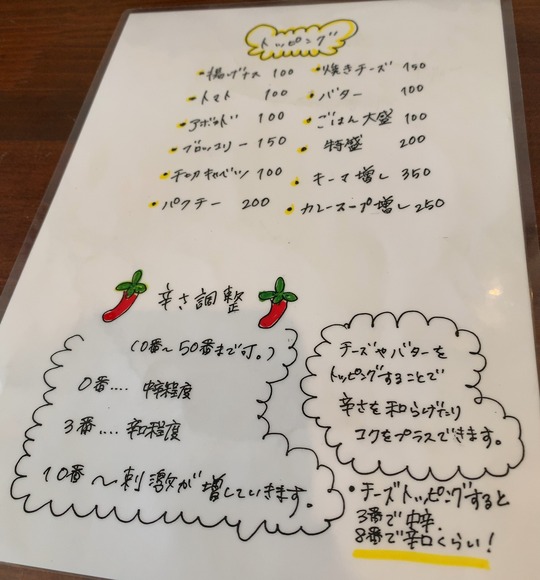 トッピング
・揚げナス 100
・トマト 100
・アボカド 100
・ブロッコリー 150
・千切キャベツ 100
・パクチー 200
・焼きチーズ 150
・バター 100
・ごはん大盛 100
・特盛 200
・キーマ増し 350
・カレースープ増し 250
辛さ調整
(0番〜50番まで可。)
0番.... 中辛程度
3番.... 辛口程度
10番〜刺激が増していきます。
チーズやバターを
トッピングすることで
辛さを和らげたり
コクをプラスできます。
・チーズトッピングすると
3番で中辛.
8番で辛口くらい!